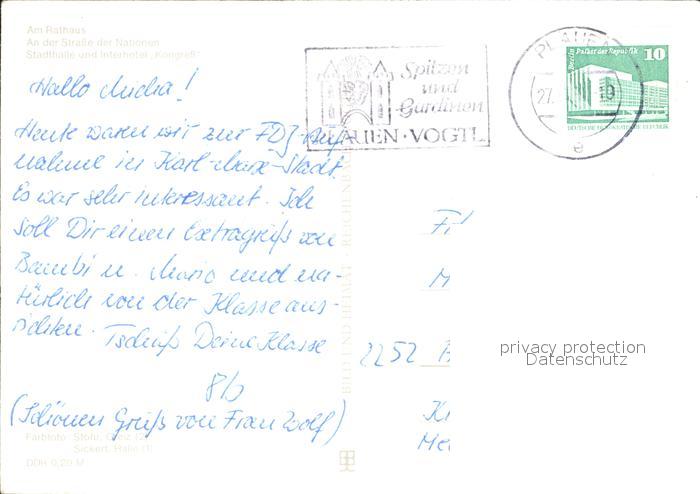 Am Rathaus
An der Straße der Nationen
Stadthalle und Interhotel „Kongreß"
Hallo Andrea!
Heute waren wir zur FDJ-Auf-
nahme in Karl-Marx-Stadt.
Es war sehr interessant. Ich
soll Dir einen Extragruß von
Bambi u. Mario und na-
türlich von der Klasse aus-
richten. Tschüß Deine Klasse
8b
(Schönen Gruß von Frau Wolf)
Farbfoto: Stöhr, (2)
Sickert, Halle (1)
DDR 0,20 M
BILD UND HEIMAT REICHENB
Spitzen
und
Gardinen
PLAUEN · VOGTL
PLAUEN
27.
e
Berlin Palast der Republik
10
DEUTSCHE DEMOKRATISCHE REPUBLIK
Fr
M
2252
Kr
Me
privacy protection
Datenschutz